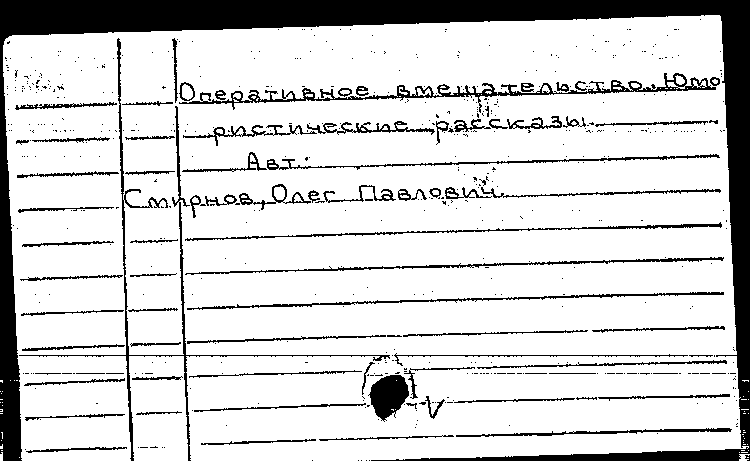 Оперативное вмешательство. Юмо
ристические рассказы.
Авт.:
Смирнов, Олег Павлович.